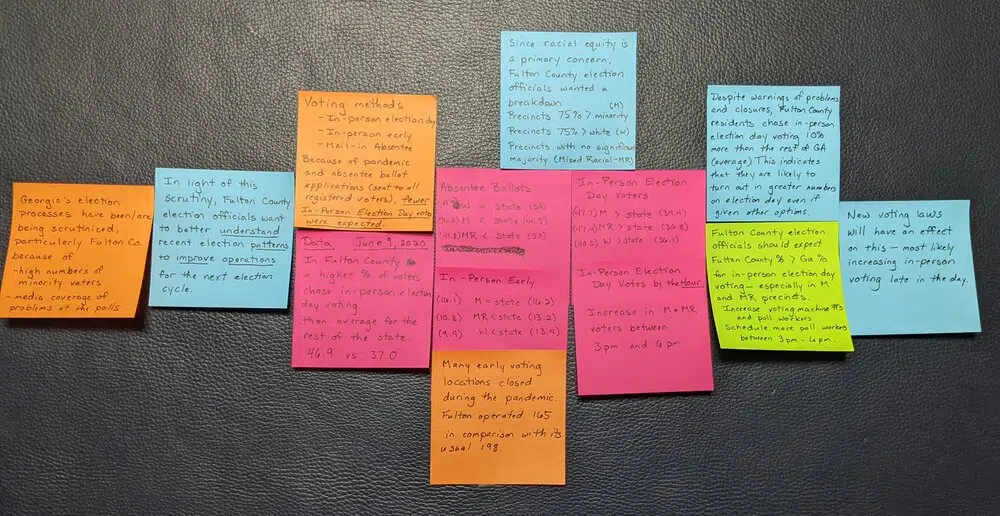 Georgia's election
processes have been/are
being scrutinized,
particularly Fulton Co.
because of
-high numbers of
minority voters
- media coverage of
problems at the polls
In light of this
Scrutiny, Fulton County
election officials want
to better understand
recent election patterns
to improve operations
for the next election
cycle.
Voting methods
- In-person election day
- In-person early
- Mail-in Absentee
Because of pandemic
and absentee ballot
applications (sent to all
registered voters), fewer
In-Person Election Day vote
were expected.
Data June 9, 2020
In Fulton County
a higher % of voters
chose in-person election
day voting
than average for the
rest of the state.
46.9 vs 37.0
Since racial equity is
a primary concern,
Fulton County election
officials wanted a
breakdown (M)
Precincts 75% > minority
Precincts 75% > white (W)
Precincts with no significant
majority (Mixed Racial-MR)
Absentee Ballots
W = state (50)
M < state
MR < state (50)
In-Person Early
(16.1) M = state (16.2)
(10.8) MR < state (13.2)
(9.9) W < state (13.9)
Many early voting
locations closed
during the pandemic.
Fulton operated 165
in comparison with its
usual 198.
In-Person Election
Day Voters
(47.7) M > state (39.4)
(47.4) MR > state (36.8)
(40.5) W > state (36.1)
In-Person Election
Day Votes by the Hour
Increase in M + MR
voters between
3pm and 6pm
Despite warnings of problems
and closures, Fulton County
residents chose in-person
election day voting 10%
more than the rest of GA
(average). This indicates
that they are likely to
turn out in greater numbers
on election day even if
given other options.
Fulton County election
officials should expect
Fulton County % > Ga %
for in-person election day
voting - especially in M
and MR precincts.
Increase voting machine #s
and poll workers
Schedule more poll workers
between 3pm - 6pm.
New voting laws
will have an effect
on this - most likely
increasing in-person
voting late in the day.